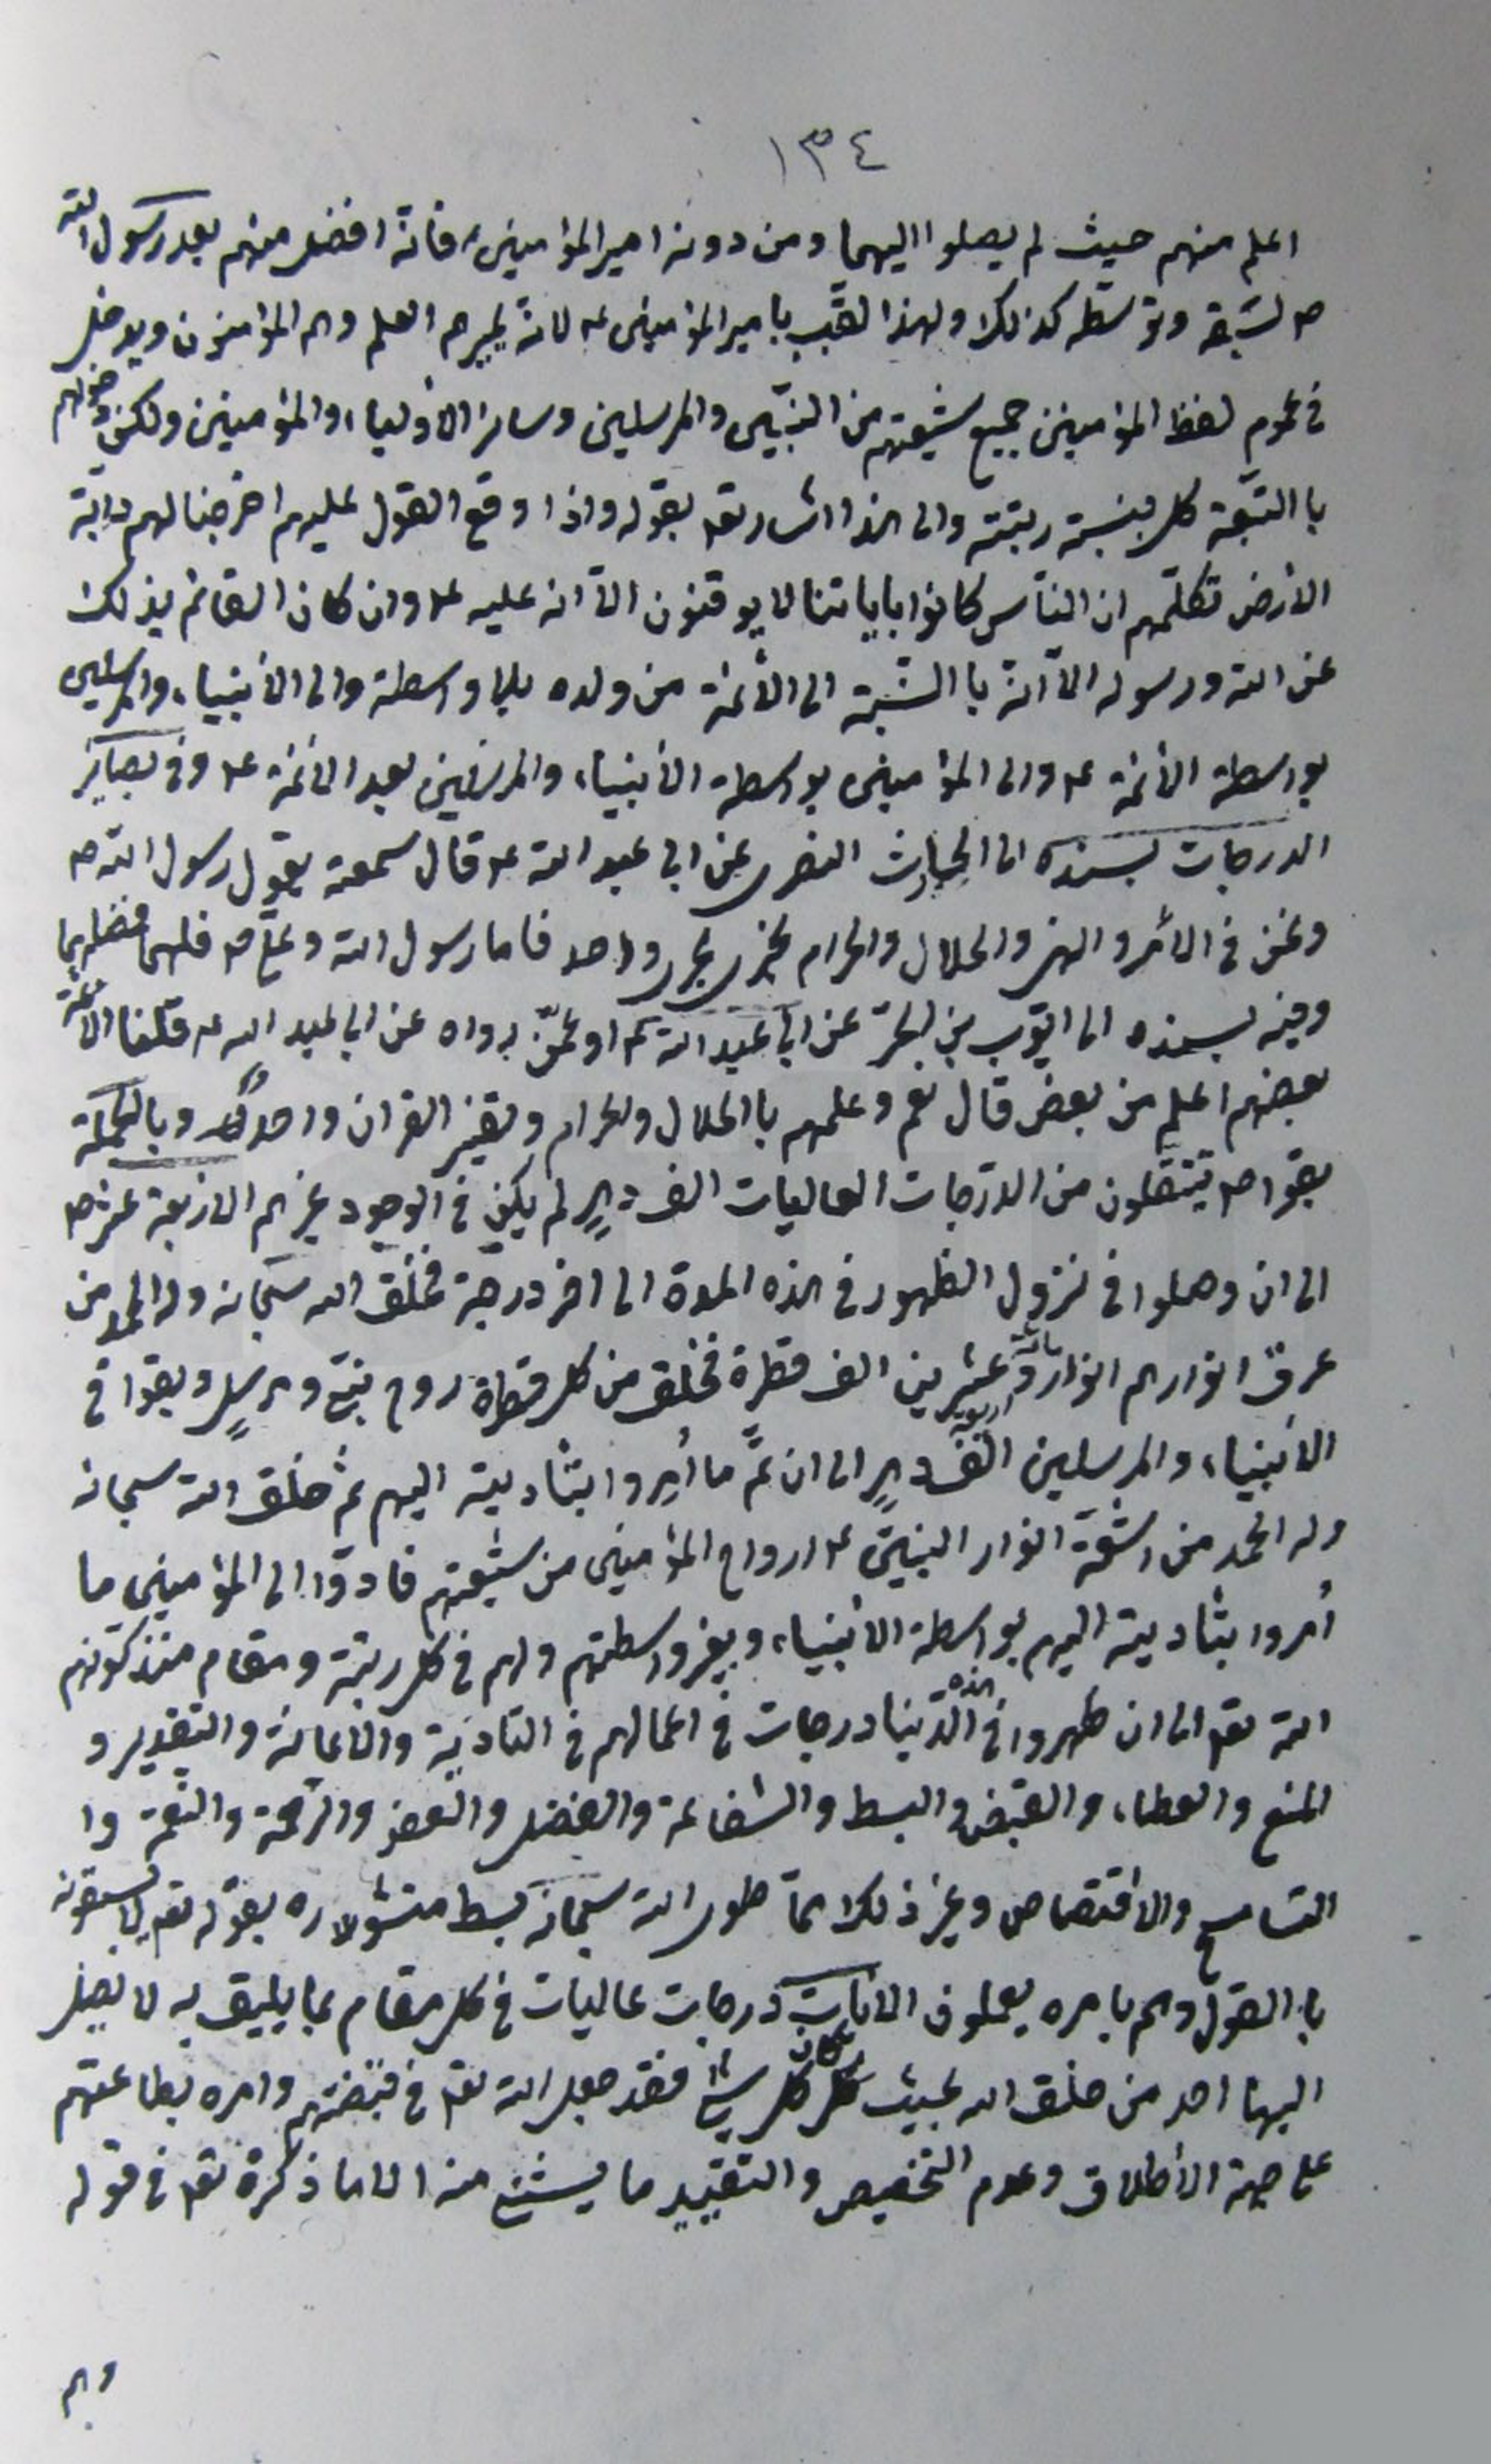 ١٣٤
اعلم منهم حيث لم يصلوا اليهما ومن دونه امير المؤمنين ع فانه افضل منهم بعد رسول الله
ص لسبقه وتوسطه كذلك ولهذا لقب بامير المؤمنين ع لانه يميرهم العلم وهم المؤمنون ويدخل
في عموم لفظ المؤمنين جميع شيعتهم من النبيين والمرسلين وساير الاولياء والمؤمنين ولكن دخولهم
با التبعة كل بنسبة رتبته والى هذا اشار تعم بقوله واذا وقع القول عليهم اخرجنا لهم دابة
الارض تكلمهم ان الناس كانوا باياتنا لا يوقنون الا انه عليه ع وان كان القائم بذلك
عن الله ورسوله الا انه با النسبة الى الأئمة من ولده بلا واسطة والى الأنبياء والمرسلين
بواسطة الأئمة ع والى المؤمنين بواسطة الأنبياء والمرسلين بعد الائمة ع وفي بصاير
الدرجات بسنده الى الحارث النضرى عن ابى عبد الله ع قال سمعته يقول رسول الله ص
ونحن في الأمر والنهى والحلال والحرام نجرى مجرى واحد فاما رسول الله وعلى ع فلهما فضلهما
وفيه بسنده الى ايوب بن الحر عن ابى عبد الله ع او عمن رواه عن ابى عبد الله ع قلنا الائمة
بعضهم اعلم من بعض قال نعم وعلمهم با الحلال والحرام وتفسير القران واحد وبالجملة
بقوا ص ينتقلون من الدرجات العاليات الف دهر لم يكن في الوجود غيرهم الاربعة عشر ص
الى ان وصلوا في نزول الظهور في هذه المدة الى اخر درجة فخلق الله سبحانه وله الحمد من
عرق انوارهم انوار مائة واربعة وعشرين الف قطرة فخلق من كل قطرة روح نبى ومرسل وبقوا في
الأنبياء والمرسلين الف دهر الى ان تم ما أمروا بتأديته اليهم ثم خلق الله سبحانه
وله الحمد من اشعة انوار النبيين ع ارواح المؤمنين من شيعتهم فادوا الى المؤمنين ما
أمروا بتأديته اليهم بواسطة الأنبياء وبغير واسطتهم ولهم في كل رتبة ومقام منذ كونهم
الله تعم الى ان ظهروا في هذه الدنيا درجات في اعمالهم في التادية والاعانة والتقدير و
المنع والعطاء والقبض والبسط والشفاعة والفضل والعفو والرحمة والنقمة وا
التسامح والاقتصاص وغير ذلك مما طوى الله سبحانه بسط منشوره بقوله تعم لا يسبقونه
با القول وهم بامره يعملون الايات درجات عاليات في كل مقام بما يليق به لا يصل
اليها احد من خلق الله بحيث كان كل شئ فقد جعل الله تعم في قبضتهم وامره بطاعتهم
على جهة الأطلاق وعدم التخصيص والتقييد ما يستثنى منه الا ما ذكره تعم في قوله
وهم